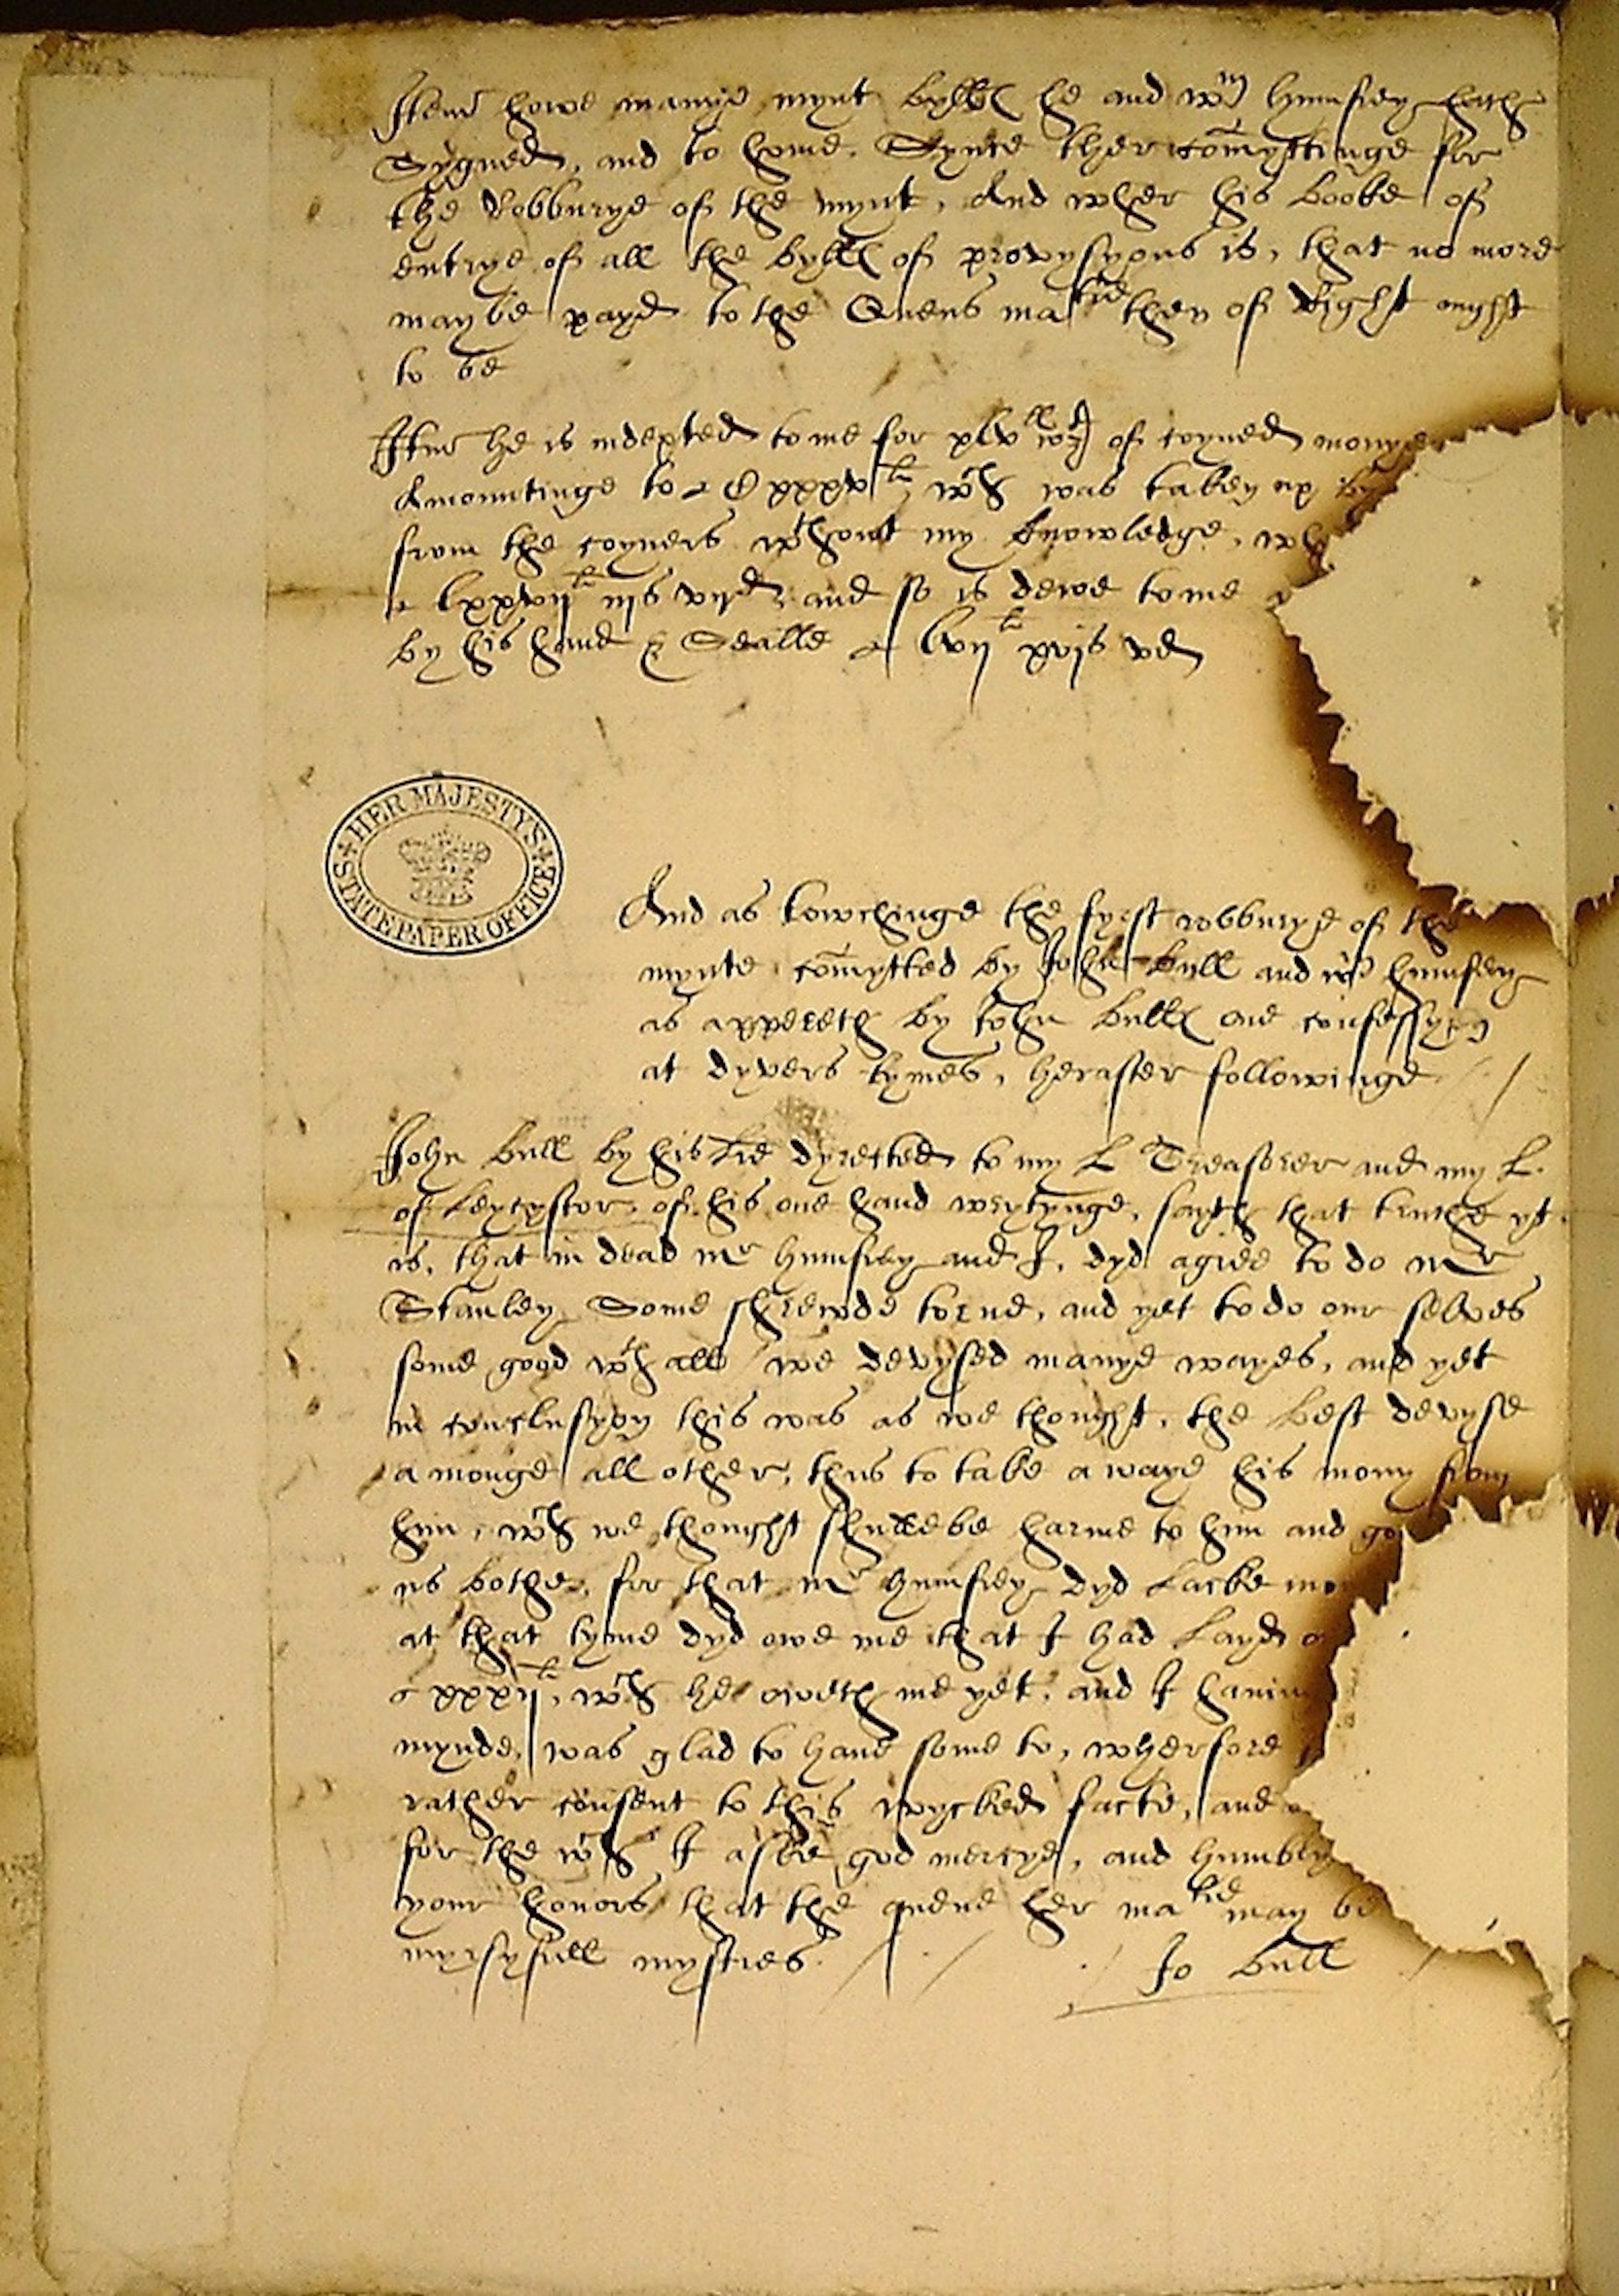 Item howe manye mynt bylles he and Wm Humfrey hathe
Sygned, and to home, Synce ther comyttinge for
the Robburye of the mynt, And wher his booke of
entrye of all the bylles of provysyons is, that no more
may be payd to the Quens matie then of Right ought
to be
Item he is indepted to me for xlv ll wt of coyned monye
Amountinge to Cxxxv li wch was taken up by
from the coyners wthout my knowledge, wh
lxxvij li iijs vijd and so is dewe to me
by his hand & Sealle lvij li xvjs vd
HER MAJESTY'S
STATE PAPER OFFICE
And as towchinge the fyrst robburye of the
mynte comytted by John Bull and Wm Humfrey
as appereth by John Bulles one confessyon
at dyvers tymes, herafter followinge
John Bull by his lre dyrected to my L Treasorer and my L.
of Leycystor, of his one hand wrytynge, sayth that truthe yt
is, that in dead Mr Humfrey and I, dyd agree to do Mr
Stanley Some shrewde torne, and yet to do our selves
some good wth all we devysed manye wayes, and yet
in conclusyon this was as we thought, the best devyse
amonge all other, thus to take awaye his mony from
him, wch we thought shulde be harme to him and go
us bothe, for that Mr Humfrey dyd lacke mo
at that tyme dyd owe me that I had layd o
xxxij li, wch he oweth me yet, and I havin
mynde, was glad to have some to, wherfore
rather consent to this wycked facte, and
for the wch I aske god mercye, and humbly
your honors that the quene her matie may be
myrsyfull mystres
Jo Bull